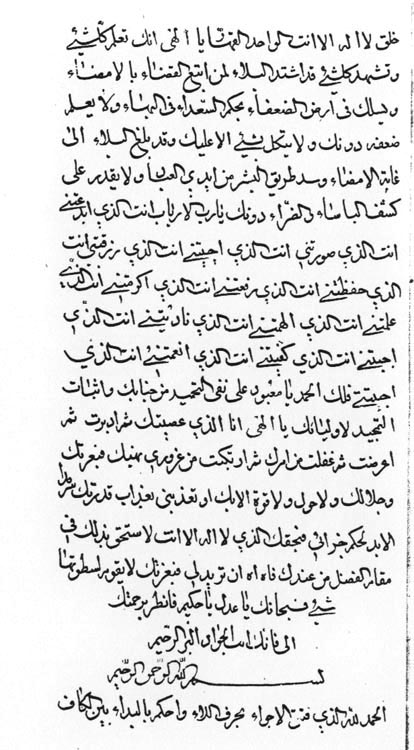 خلق لا اله الا انت الواحد القهار يا الهي انك تعلم كلشيئ
وتشهد كلشيئ قد اشتد البلاء لمن اتبع القضاء بالامضاء
ويسلك في ارض الضعفاء بحكم السعداء في البهاء ولا يعلم
ضعفه دونك ولا يتكل بشيئ الا عليك وقد بلغ البلاء الى
غاية الامضاء وسد طريق البشر من ايدي العباد ولا يقدر على
كشف الباساء والضراء دونك يا رب الارباب انت الذي ابدعتني
انت الذي صورتني انت الذي احييتني انت الذي رزقتني انت
الذي حفظتني انت الذي رفعتني انت الذي اكرمتني انت الذي
علمتني انت الذي الهمتني انت الذي ناديتني انت الذي
اجبتني انت الذي كفيتني انت الذي انعمتني انت الذي
اجبتني فلك الحمد يا معبود على نفي التحميد من جنابك واثبات
التمجيد لاوليائك يا الهي انا الذي عصيتك ثم ادبرت ثم
اعرضت ثم غفلت من امرك ثم ارتكبت من غروري نهيك فبعزتك
وجلالك ولا حول ولا قوة الا بك لو تعذبني بعذاب قدرتك سرمد
الابد لحكم جزائي فبحقك الذي لا اله الا انت لاستحق بذلك في
مقام الفضل من عندك فاه اه ان تريد لي فبعزتك لا يقوم لسطوتك
شيئ فسبحانك يا عدل يا حكيم فانظر برحمتك
الي فانك انت الجواد البر الرحيم
بسم الله الرحمن الرحيم
الحمد لله الذي فتح الاجراء بحرف اللاء واحكم بالبداء بين الكاف